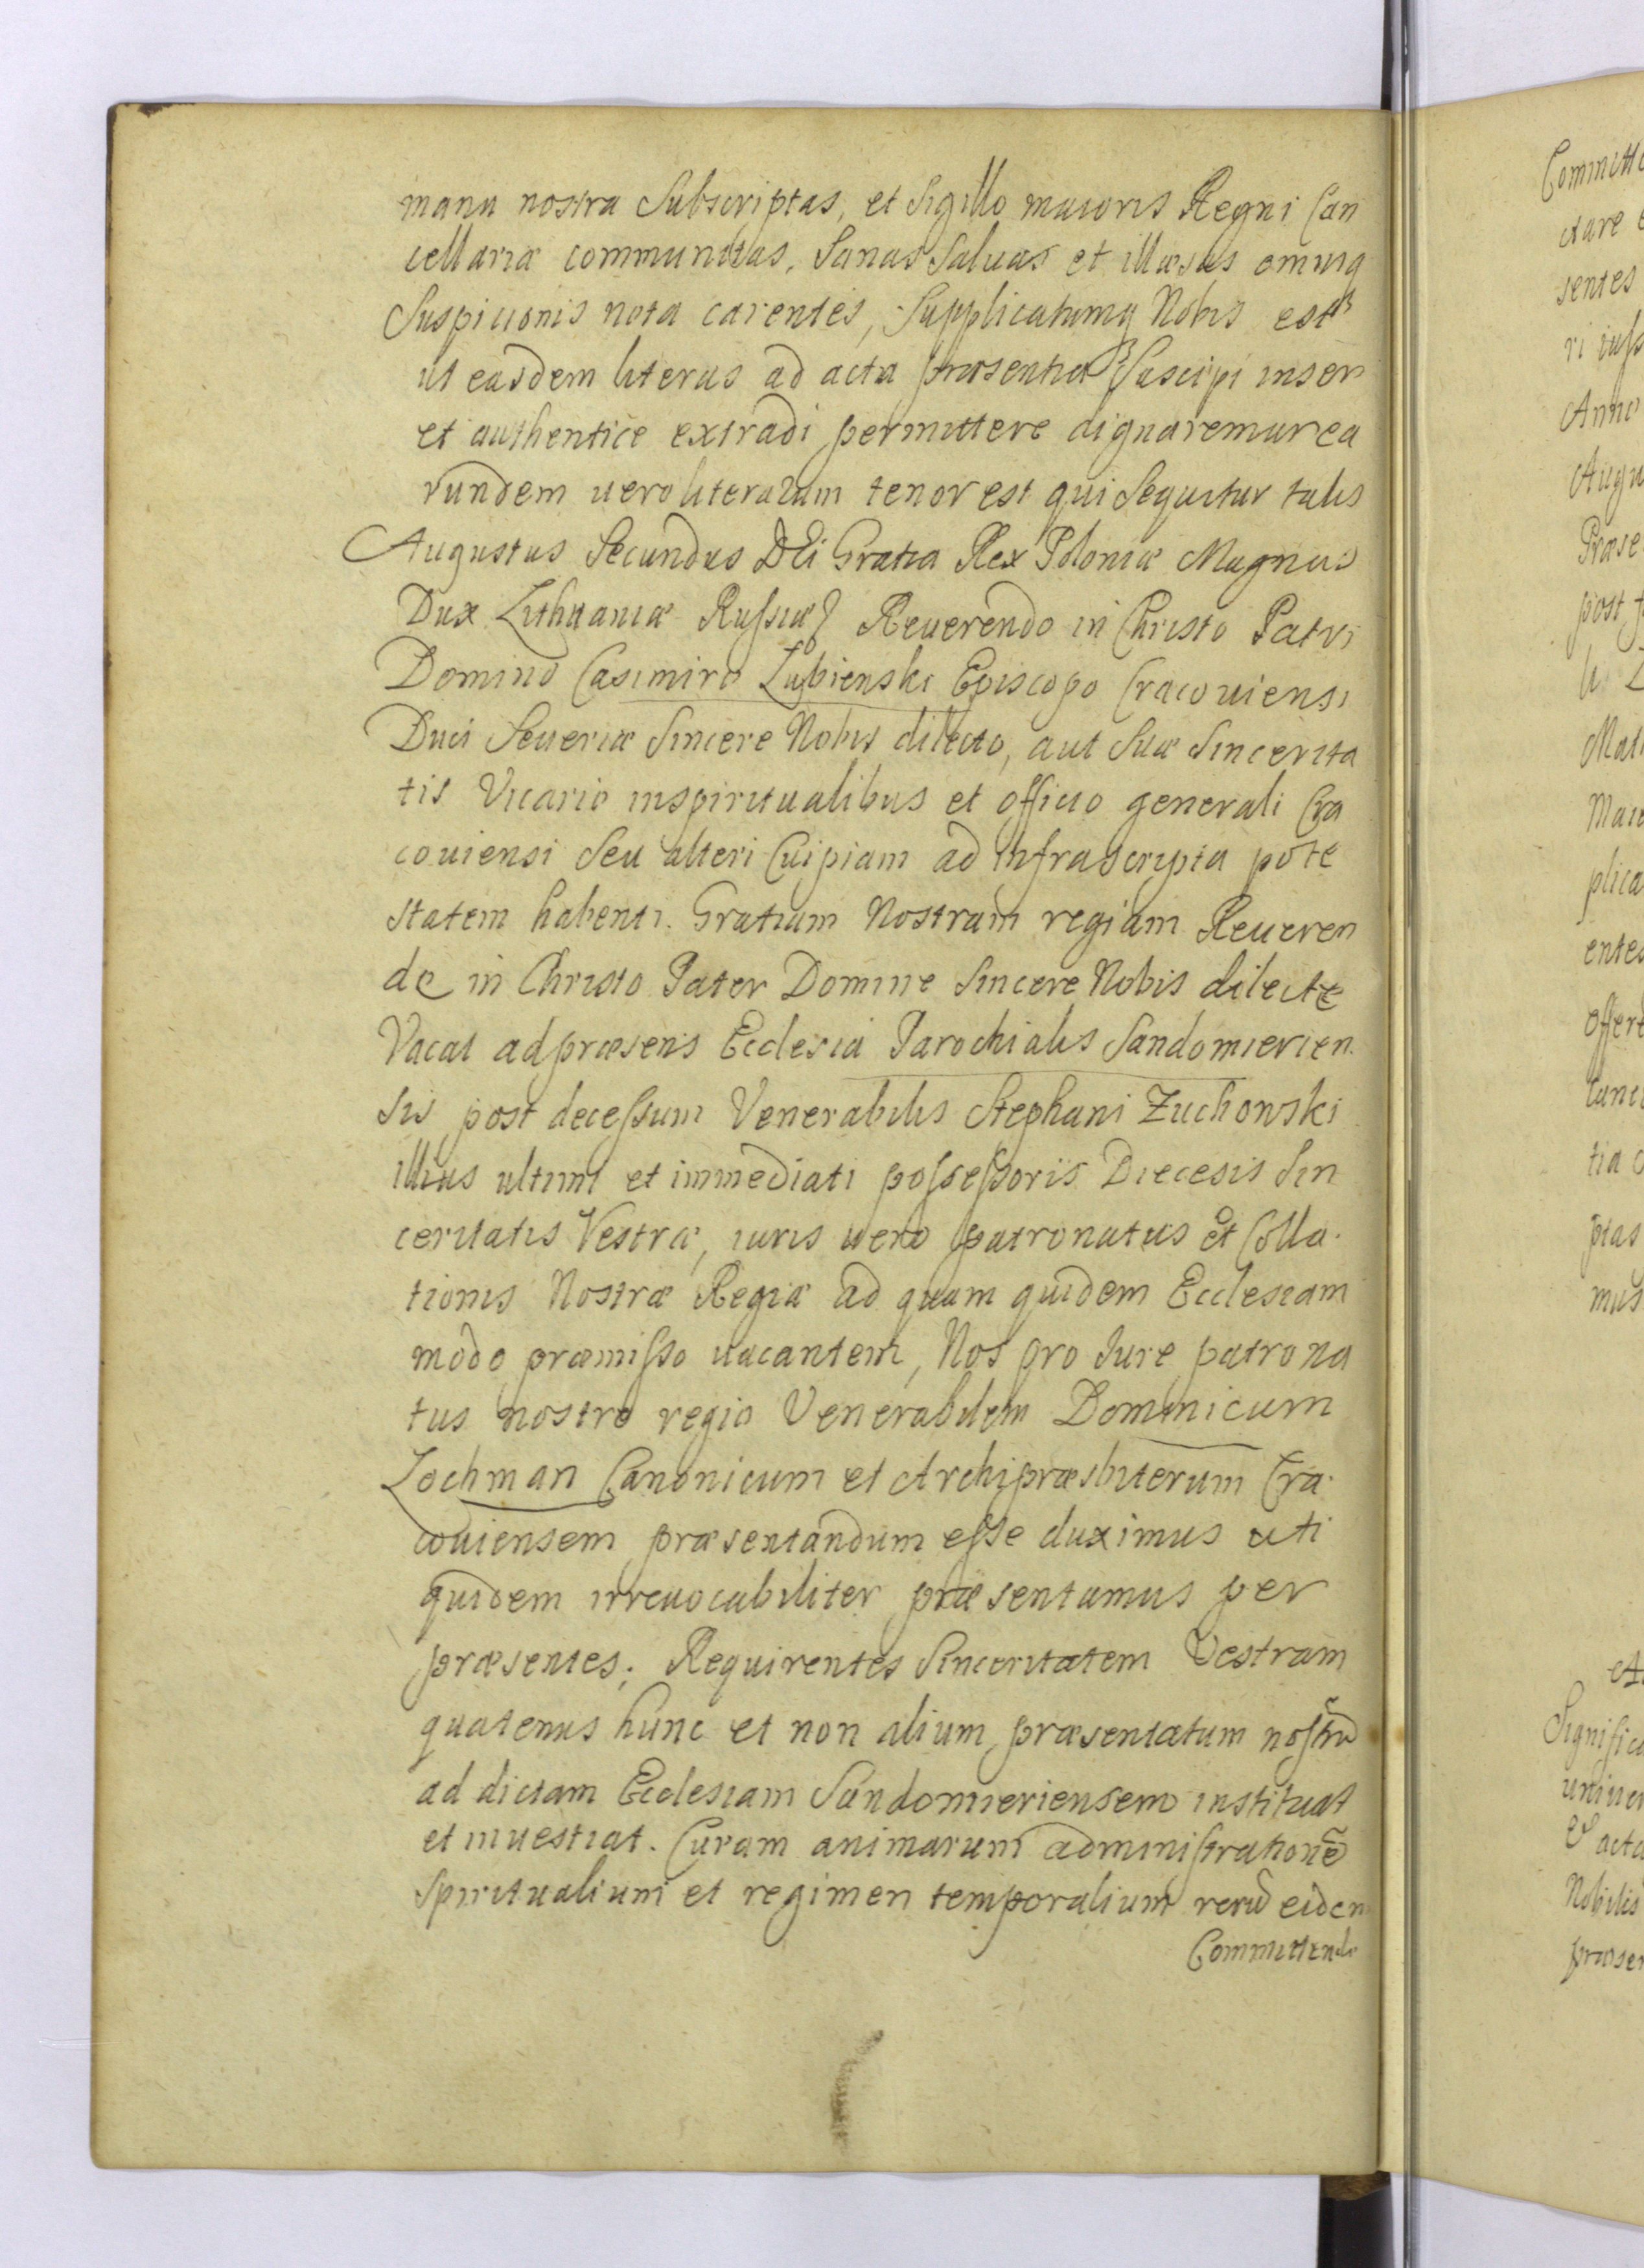 manu nostra Subscriptas, et Sigillo maioris Regni Can
cellariæ communitas, Sanas Saluas et illæsas omniq
Suspicionis nota carentes, Supplicatumq Nobis est
ut easdem literas ad acta præsentia Suscipi inseri
et authentice extradi permittere dignaremur ea
rundem uero literarum tenor est qui Sequitur talis
Augustus Secundus DEi Gratia Rex Poloniæ Magnus
Dux Lithuaniæ Russiæ Reuerendo in Christo Patri
Domino Casimiro Lubienski Episcopo Cracouiensi
Duci Seueriæ Sincere Nobis dilecto, aut Suæ Sincerita
tis Vicario inspiritualibus et officio generali Cra
couiensi Seu alteri Cuipiam ad infrascripta pote
statem habenti. Gratiam Nostram regiam Reueren
de in Christo Pater Domine Sincere Nobis dilecte
Vacat ad præsens Ecclesia Parochialis Sandomierien
sis post decessum Venerabilis Stephani Zuchowski
illius ultimi et immediati possessoris Diecesis Sin
ceritatis Vestræ, iuris uero patronatus et Colla
tionis Nostræ Regiæ ad quam quidem Ecclesiam
modo præmisso uacantem, Nos pro Jure patrona
tus nostro regio Venerabilem Dominicum
Lochman Canonicum et Archipræsbiterum Cra
couiensem præsentandum esse duximus uti
quidem irreuocabiliter præsentamus per
præsentes. Requirentes Sinceritatem Vestram
quatenus hunc et non alium præsentatum nostrũ
ad dictam Ecclesiam Sandomieriensem instituat
et inuestiat. Curam animarum administrationẽ
Spiritualium et regimen temporalium rerũ eidem
Committendo
Committe
ctare
sentes
ri iuss
Anno
Augu
Præse
post
Mat
Maio
plica
entes
offert
tia
ptas
mus
Significa
uniuer
acta
Nobilis
præsen